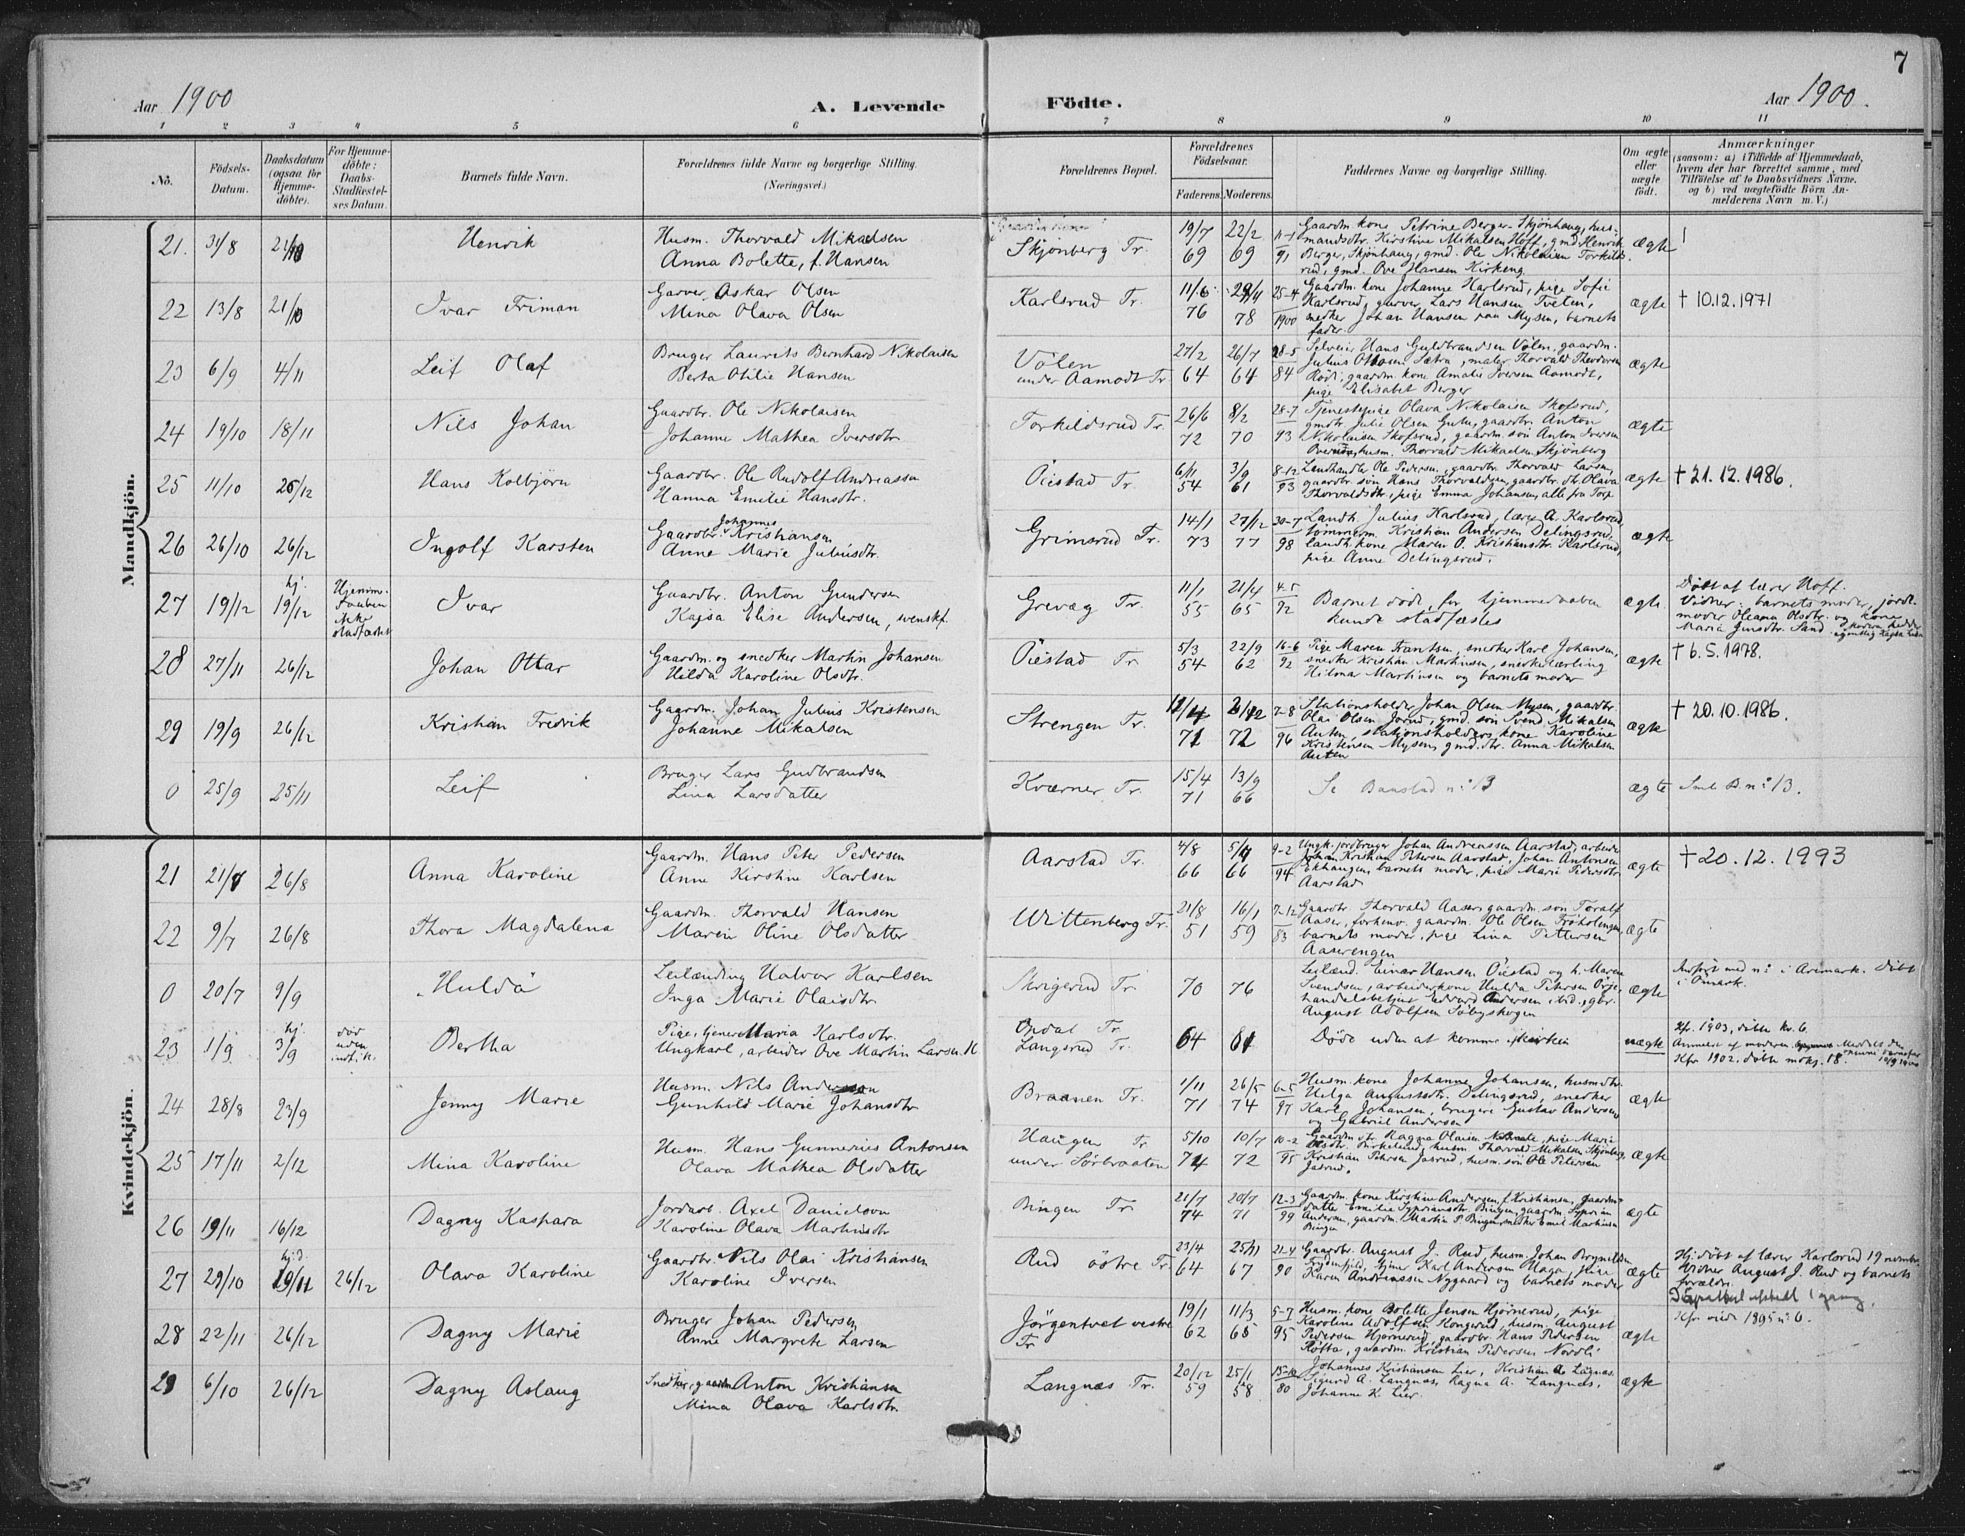 7
Aar 1900
A. Levende
Födte.
Aar 1900.
1 2 3 4 5 6 7 8 9 10 11
Nó.
Födsels-
Datum.
Daabsdatum
(ogsaa for
Hjemme-
döbte).
For Hjemme-
döbte:
Daabs-
Stadfæstel-
ses Datum.
Barnets fulde Navn.
Forældrenes fulde Navne og borgerlige Stilling.
(Næringsvei.)
Forældrenes Bopæl.
Forældrenes
Födselsaar.
Faderens. Moderens.
Faddernes Navne og borgerlige Stilling.
Om ægte
eller
uægte
födt.
Anmærkninger
(saasom: a) i Tilfælde af Hjemmedaab,
hvem der har forrettet samme, med
Tilföielse af to Daabsvidners Navne.
og b) ved uægtefödte Börn An-
melderens Navn m. V.)
Mandkjön.
21. 31/8 21/10 Henrik
Husm. Thorvald Mikaelsen
Anna Bolette, f. Hansen
Skjönberg Tr.
19/7 69 22/2 69 91
Gaardm. kone Petrine Berger-Skjønhaug, hus-
mandsdtr. Kirstine Mikalsen Hoff, gmd Henrik
Berger, Skjönhaug, gmd. Ole Nikolaisen Torkilds
rud, gmd. Ove Hansen Kirkeng
ægte
22 13/8 21/10 Ivar Friman
Garver Oskar Olsen
Mina Olava Olsen
Karlsrud Tr.
11/6 76 78 25-4 1900
Gaardm. kone Johanne Karlsrud, pige Sofie
Karlsrud, garver Lars Hansen Tveten,
snedker Johan Hansen paa Mysen, barnets
fader.
ægte † 10.12.1971
23 6/9 4/11 Leif Olaf
Bruger Laurits Bernhard Nikolaisen
Berta Otilie Hansen
Völen
under Aamodt Tr
27/2 64 26/7 64 28-5 84
Selveier Hans Guldbrandsen Völen, gaardm.
Julius Ottosen Sætra, maler Thorvald Theodorsen
Röd, gaardm. kone Amalie Iversen Aamodt,
pige Elisabet Berger
ægte
24 19/10 18/11 Nils Johan
Gaardbr. Ole Nikolaisen
Johanne Mathea Iversdtr.
Torkildsrud Tr.
26/6 72 8/2 70 28-7 93
Tjenestepige Olava Nikolaisen Skofsrud,
gmdtr Julie Olsen Gutu, gaardbr. Anton
Nikolaisen Skofsrud, gaardm. sön Anton Iversen
husm. Thorvald Mikaelsen Skjønberg
ægte
25 11/10 26/12 Hans Kolbjörn
Gaardbr. Ole Rudolf Andreassen
Hanna Emilie Hansdtr.
Öiestad Tr.
6/11 54 3/9 61 8-12 93
Landhandler Ole Pedersen, gaardbr. Thorvald Larsen,
gaardbr. sön Hans Thorvaldsen, gaardbr. dtr. Olava
Thorvaldsdtr, pige Emma Johansen, alle fra Torp
ægte † 21.12.1986.
26 26/10 26/12 Ingolf Karsten
Gaardbr. Johannes Kristiansen
Anne Marie Juliusdtr.
Grimsrud Tr.
14/1 73 27/12 77 30-7 98
Landh. Julius Karlsrud, lærer A. Karlsrud,
tömmerm. Kristian Andersen Delingsrud,
landh. kone Maren O. Kristiansdtr. Karlsrud,
pige Anne Delingsrud.
ægte
27 19/12 hj. 19/12
Hjemme-
daaben
ikke
stadfæstet
Ivar
Gaardbr. Anton Gundersen
Kajsa Elise Andersen, svenskf.
Grevæg Tr.
11/1 55 21/4 65 4-5 92
Barnet döde, før hjemmedaaben
kunde stadfæstes
ægte
Döbt af lærer Hoff.
Vidner: barnets moder, jord.
moder Oleana Olsdtr. og kone
Maria Jensdtr. Sand.
28 27/11 26/12 Johan Ottar
Gaardm. og snedker Martin Johansen
Hilda Karoline Olsdtr.
Öiestad Tr
5/3 54 22/9 62 16-6 92
Pige Maren Frantsen, snedker Karl Johansen,
snedker Kristian Martinsen, snedkerlærling
Hilmar Martinsen og barnets moder
ægte † 6.5.1978.
29 19/9 26/12 Kristian Fredrik
Gaardm. Johan Julius Kristensen
Johanne Mikalsen
Strengen Tr.
12/4 71 72 7-8 96
Stationsholder Johan Olsen Mysen, gaardbr.
Olai Olsen Jörud, gmd. sön Svend Mikalsen
Auten, stationsholders kone Karoline
Kristensen Mysen, gmd. dtr. Anna Mikalsen
Auten
ægte † 20.10.1986.
0 25/9 25/11 Leif
Bruger Lars Gudbrandsen
Lina Larsdatter
Kværner Tr.
15/4 71 13/9 66
Se Baastad nº 13
ægte Smt. B. nº 13.
Kvindekjön.
21 21/7 26/8 Anna Karoline
Gaardm. Hans Peter Pedersen
Anne Kirstine Karlsen
Aarstad Tr.
4/8 66 66 9-2 94
Ungk. jordbruger Johan Andreassen Aarstad, arbeider
Johan Kristian Petersen Aarstad, Johan Antonsen
Ekhaugen, barnets moder, pige Marie Pedersdtr
Aarstad
ægte † 20.12.1993
22 9/7 26/8 Thora Magdalena
Gaardm. Thorvald Hansen
Maren Oline Olsdatter
Wittenberg Tr.
21/8 51 16/1 59 7-12 83
Gaardbr Thorvald Aaser, gaardm. sön Toralf
Aaser, forhenv. gaardm. Ole Olsen Fröholengen,
barnets moder, pige Lina Pettersen
Aaserengen
ægte
0 20/7 9/9 Hulda
Leilænding Halvor Karlsen
Inga Marie Olaisdtr.
Skrigerud Tr.
70 76
Leilænd. Einar Hansen Öiestad og h. Maren
Svendsen, arbeiderkone Hulda Petersen Örje,
handelsbetjent Edvard Andersen ibid., gbr.
August Adolfsen Töbyskogen
ægte
Anført med nº i Aremark. Döbt
i Ömark.
23 1/9 hj. 3/9
död
uden
Bertha
Pige, tjener Maria Karlsdtr.
Ungkarl, arbeider Ove Martin Larsen
Ondal Tr.
Langsrud Tr.
64
Döde uden at komme i kirken
uægte
Kfr. 1903, döbte kv. 6.
Anmeldt af moderen.
Kfr 1902, döbte mskj. 18.
24 28/8 23/9 Jenny Marie
Husm. Nils Andersson
Gunhild Marie Johansdtr
Braanen Tr.
1/11 71 26/5 74 6-5 97
Husm. kone Johanne Johansen, husmdtr.
Helga Augustsdtr. Delingsrud, snedker
Karl Johansen, brugere Gustav Andersen
og Gabriel Andersen
ægte
25 17/11 2/12 Mina Karoline
Husm. Hans Gunnerius Antonsen
Olava Mathea Olsdatter
Haugen Tr
under Sörbraaten
5/10 74 10/7 72 10-2 95
Gaardm. dtr Ragna Olaisen, pige Marie
husm. Thorvald Mikalsen Skjønberg,
Kristian Petersen Jaarud, husm. sön Ole Petersen
Jaarud.
ægte
26 19/11 16/12 Dagny Kaspara
Jordarb. Axel Danielson
Karoline Olava Martinsdtr
Bingen Tr.
21/7 74 20/7 71 12-3 99
Gaardm. kone Kirstine Andersen, f. Kristiansen, gaardm.
datter Emilie Bingen, gaardm. Syprian
Andersen, gaardm. Martin P. Bingen, snedker Emil Martinsen
Bingen
ægte
27 29/10 hjd. 19/11 26/12 Olava Karoline
Gaardbr. Nils Olai Kristiansen
Karoline Iversen
Rud östre Tr.
23/4 64 67 21-4 90
Gaardbr. August J. Rud, husm. Johan Brynildsen
Karl Andersen Haga, pige
Karen Andreassen Nygaard og barnets moder
ægte
Hj. döbt af lærer Karlsrud 19 novmbr.
Vidner August J. Rud og barnets
forældre.
28 22/11 26/12 Dagny Marie
Bruger Johan Pedersen
Anne Margrete Larsen
Jörgentvet vestre
Tr
19/1 62 11/3 65 5-7 95
Husm. kone Bolette Jensen Hjørnerud, pige
Karoline Adolfsen Kongerud, husm. August
Pedersen Hjørnerud, gaardbr. Hans Pedersen
Röfta, gaardm. Kristian Pedersen Nordli
ægte
Kfr viede 1895 nº 6.
29 6/10 26/12 Dagny Aslaug
Snedker, gaardm Anton Kristiansen
Mina Olava Karlsdtr.
Langnæs Tr.
20/12 59 25/1 58 15-10 80
Johannes Kristiansen Lier, Kristian A. Langnæs.
Sigurd A. Langnæs, Ragna A. Langnæs,
Johanne K. Lier.
ægte